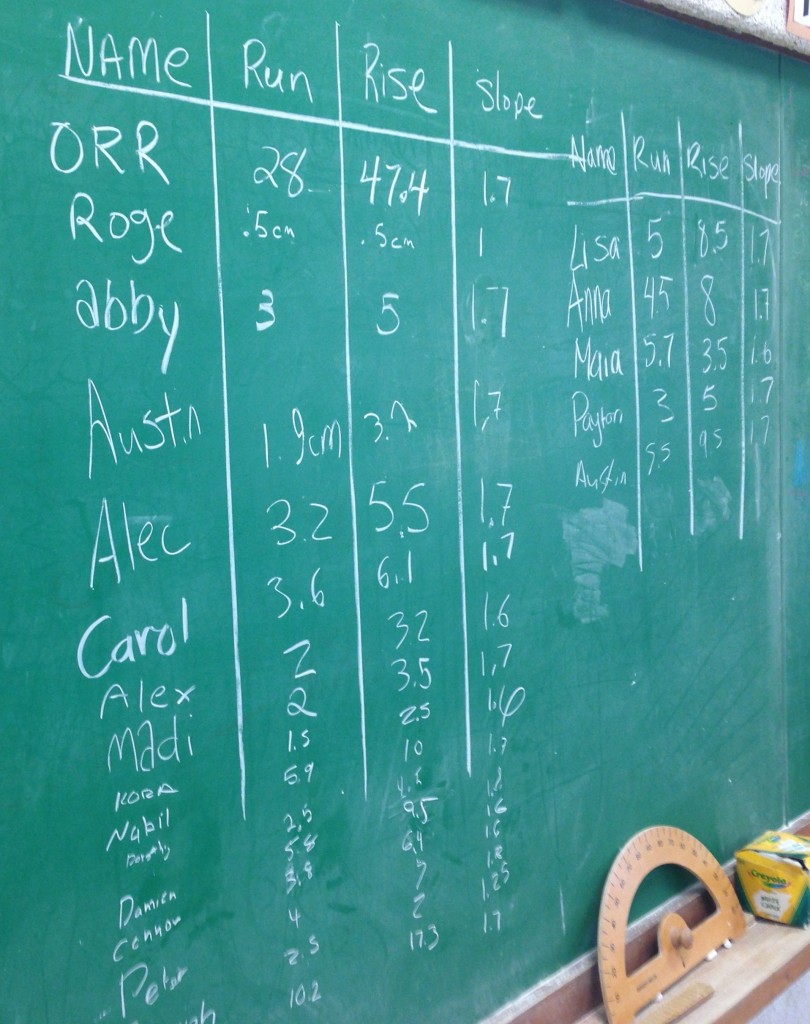 NAME Run Rise Slope
ORR 28 47.4 1.7
Roge .5cm .5cm 1
abby 3 5 1.7
Austin 1.9cm 3.2 1.7
Alec 3.2 5.5 1.7
Carol 3.6 6.1 1.7
Alex 2 32 1.6
Madi 2 3.5 1.7
KORA 1.5 2.5 1.6
Nabil 5.9 10 1.7
2.5
5.8 9.5 1.6
Damien 3.8 6.4 1.6
Connor 4 7 1.8
Peter 2.5 2 1.25
10.2 17.3 1.7
Name Run Rise Slope
Lisa 5 8.5 1.7
Anna 4.5 8 1.7
Maia 5.7 3.5 1.6
Payton 3 5 1.7
Austin 5.5 9.5 1.7
Crayola
WHITE